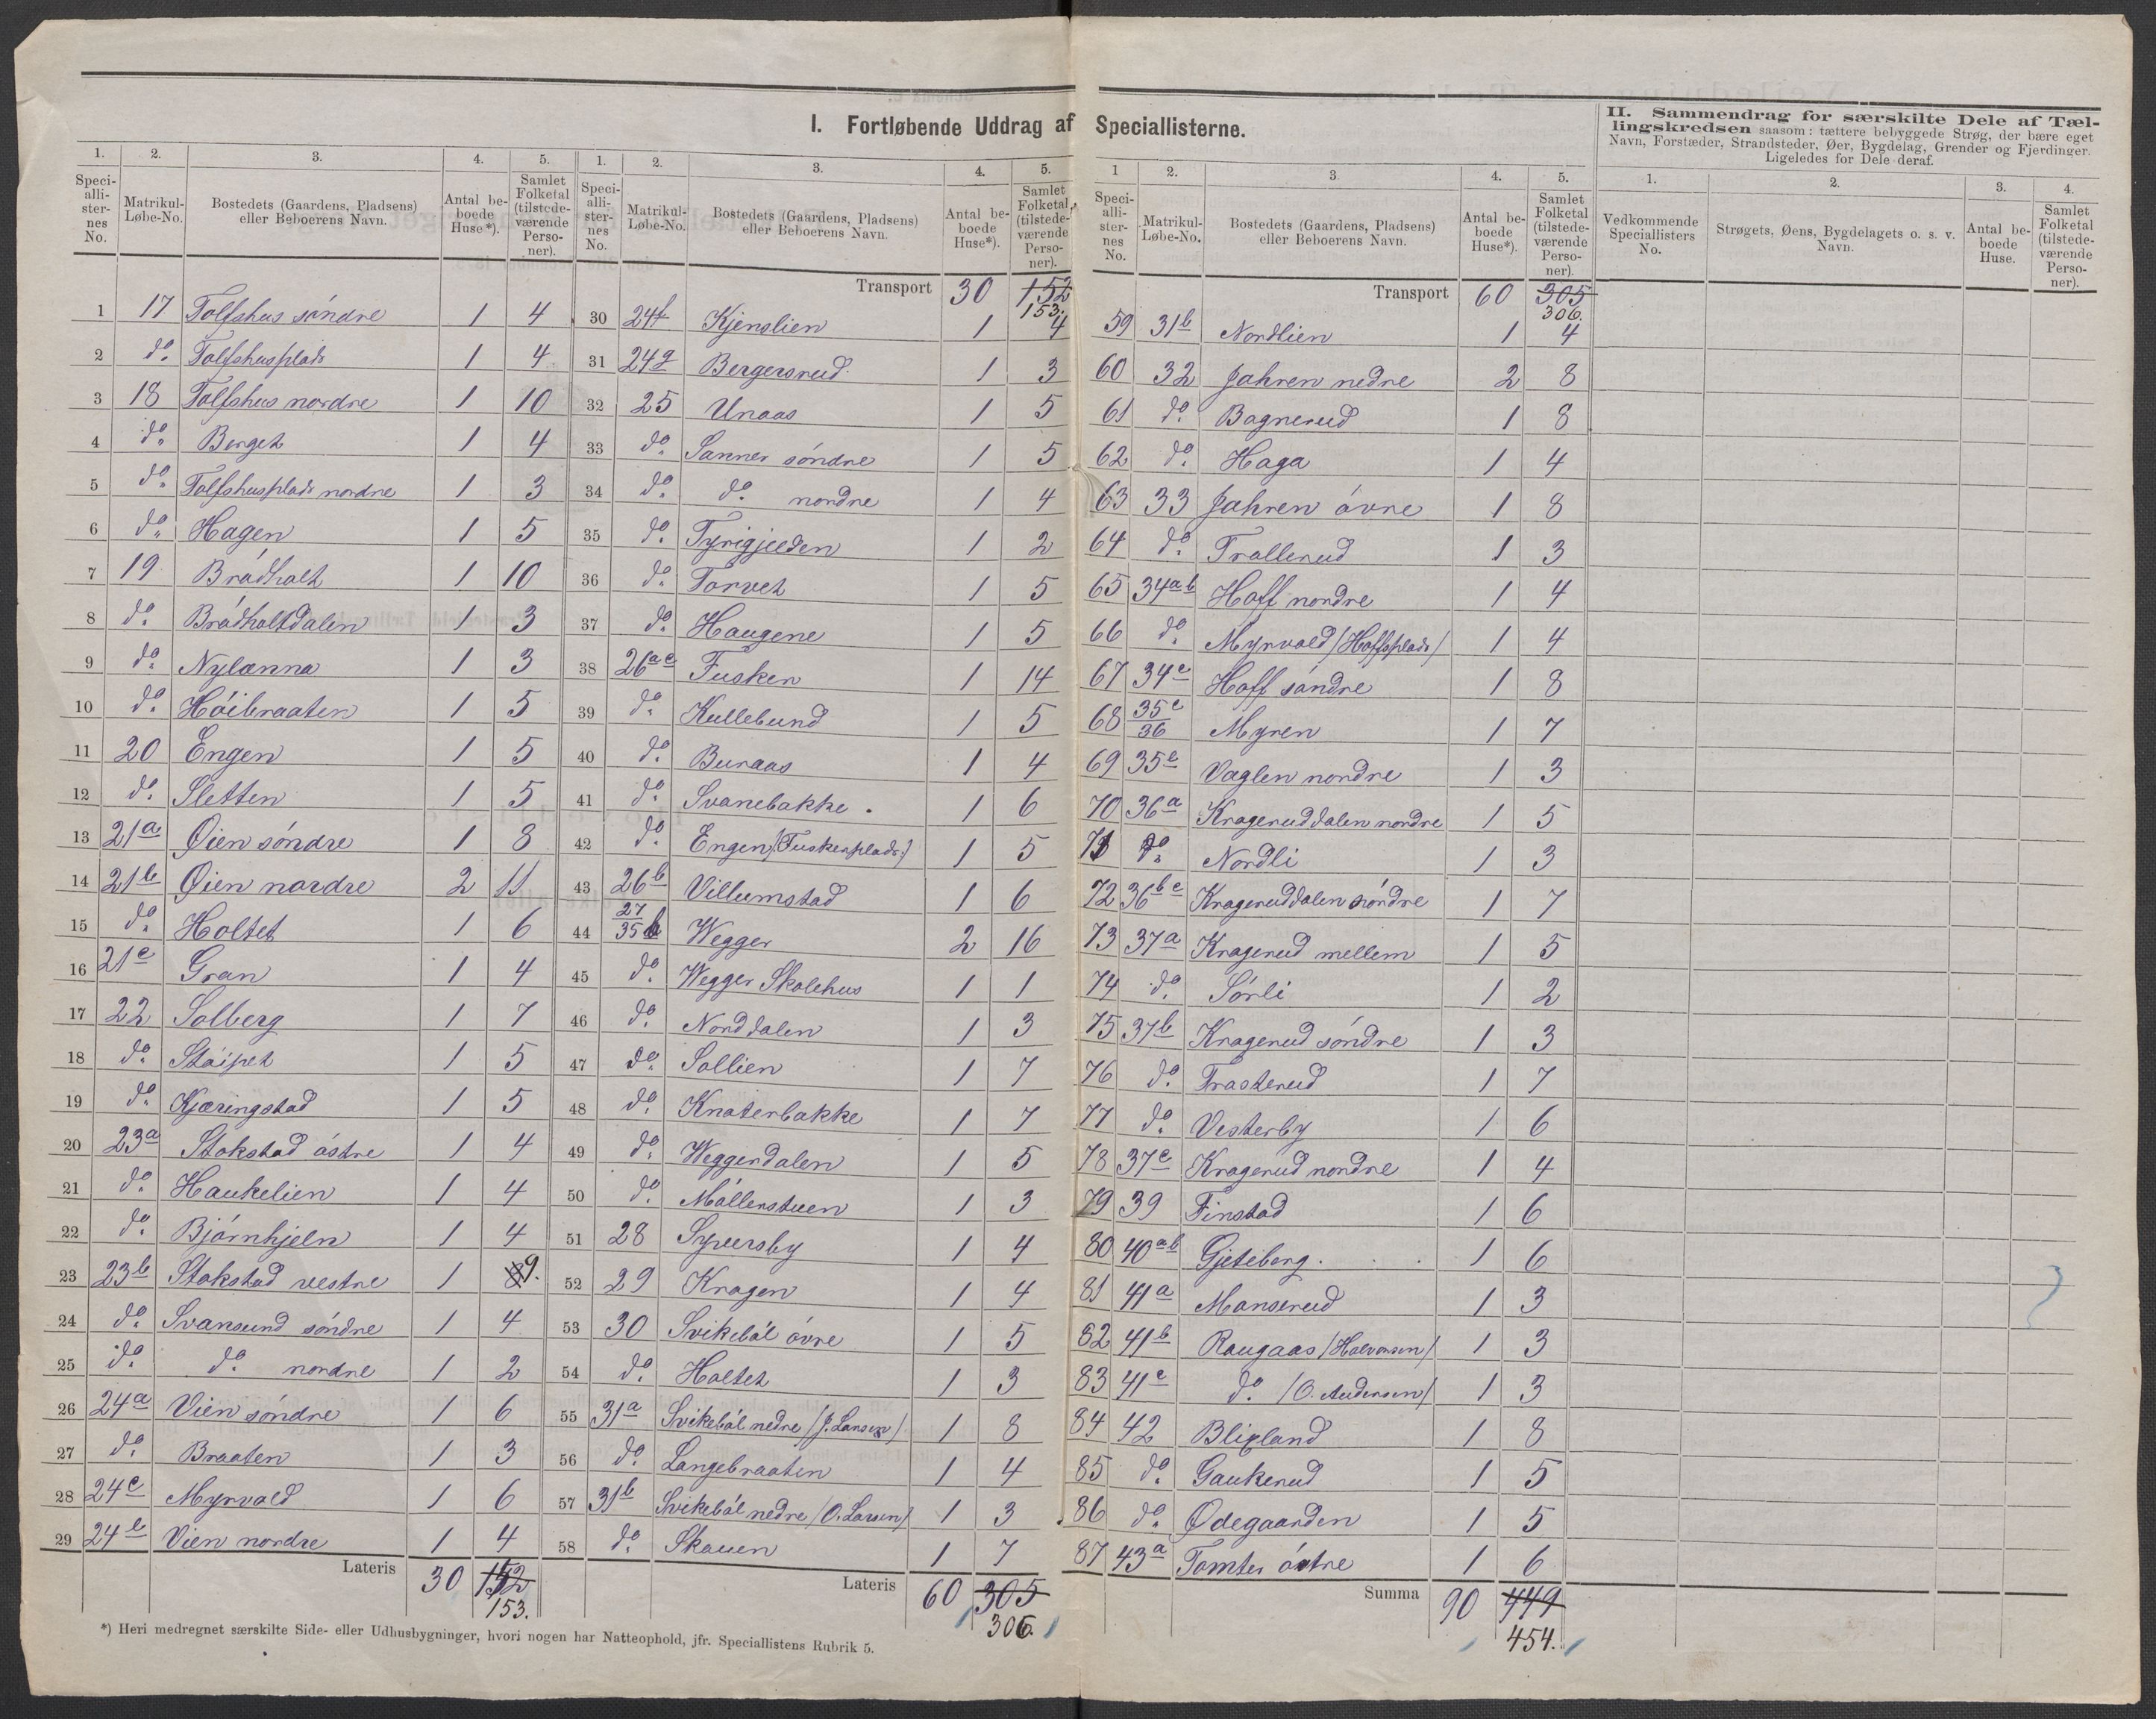 I. Fortløbende Uddrag af Speciallisterne.
II. Sammendrag for særskilte Dele af Tæl-
lingskredsen saasom: tættere bebyggede Strøg, der bære eget
Navn, Forstæder, Strandsteder, Øer, Bygdelag, Grender og Fjerdinger.
Ligeledes for Dele deraf.
1. 2. 3. 4. 5.
Speci-
alli-
ster-
nes
No.
Matrikul-
Løbe-No.
Bostedets (Gaardens, Pladsens)
eller Beboerens Navn.
Antal be-
boede
Huse*).
Samlet
Folketal
(tilstede-
værende
Perso-
ner).
1 17 Tolfshus söndre 1 4
2 do. Tolfshusplads 1 4
3 18 Tolfshus nordre 1 10
4 do. Berget 1 4
5 do. Tolfshusplads nordre 1 3
6 do. Hagen 1 5
7 19 Brådholt 1 10
8 do. Brådholtdalen 1 3
9 do. Nylænna 1 3
10 do. Höibraaten 1 5
11 20 Engen 1 5
12 do. Sletten 1 5
13 21a Øien söndre 1 8
14 21b Øien nordre 2 11
15 do. Holtet 1 6
16 21c Gran 1 4
17 22 Solberg 1 7
18 do. Stöipet 1 5
19 do. Kjæringstad 1 5
20 23a Stokstad östre 1 4
21 do. Haukelien 1 4
22 do. Björnhjeln 1 4
23 23b Stokstad vestre 1 8 9.
24 do. Svansund söndre 1 4
25 do. do. nordre 1 2
26 24a Vien söndre 1 6
27 do. Braaten 1 3
28 24c Myrvold 1 6
29 24b Vien nordre 1 4
Lateris 30 152
153.
*) Heri medregnet særskilte Side- eller Udhusbygninger, hvori nogen har Natteophold, jfr. Speciallistens Rubrik 5.
1. 2. 3. 4. 5.
Speci-
alli-
ster-
nes
No.
Matrikul-
Løbe-No.
Bostedets (Gaardens, Pladsens)
eller Beboerens Navn.
Antal be-
boede
Huse*).
Samlet
Folketal
(tilstede-
værende
Perso-
ner).
Transport 30 152
153.
30 24f Kjenslien 1 4
31 24g Bergersrud 1 3
32 25 Unaas 1 5
33 do. Sanner söndre 1 5
34 do. do. nordre 1 4
35 do. Tyrigjelden 1 2
36 do. Torvet 1 5
37 do. Haugene 1 5
38 26ac Fusken 1 14
39 do. Kullebund 1 5
40 do. Buraas 1 4
41 do. Svanebakke. 1 6
42 do. Engen (Fuskenplads) 1 5
43 26b Villumstad 1 6
44 27 35b Wegger 2 16
45 do. Wegger Skolehus 1 1
46 do. Norddalen 1 3
47 do. Sollien 1 7
48 do. Knaterbakke 1 7
49 do. Weggerdalen 1 5
50 do. Möllerstuen 1 3
51 28 Syversby 1 4
52 29 Kragen 1 4
53 30 Svikeböl övre 1 5
54 do. Holtet 1 3
55 31a Svikeböl nedre (J. Larsen) 1 8
56 do. Langebraaten 1 4
57 31b Svikeböl nedre (O. Larsen) 1 3
58 do. Skauen 1 7
Lateris 60 305
306.
1 2. 3. 4. 5.
Speci-
alli-
ster-
nes
No.
Matrikul-
Løbe-No.
Bostedets (Gaardens, Pladsens)
eller Beboerens Navn.
Antal be-
boede
Huse*).
Samlet
Folketal
(tilstede-
værende
Perso-
ner).
Transport 60 305
306.
59 31b Nordlien 1 4
60 32 Jahren nedre 2 8
61 do. Bagnerud 1 8
62 do. Haga 1 4
63 33 Jahren övre 1 8
64 do. Trollerud 1 3
65 34ab Hoff nordre 1 4
66 do. Myrvold (Hoffsplads) 1 4
67 34c Hoff söndre 1 8
68 35c 36 Myren 1 7
69 35e Vaglen nordre 1 3
70 36a Krageruddalen nordre 1 5
71 do. Nordli 1 3
72 36bc Krageruddalen söndre 1 7
73 37a Kragerud mellem 1 5
74 do. Sörli 1 2
75 37b Kragerud söndre 1 3
76 do. Trasterud 1 7
77 do. Vesterby 1 6
78 37c Kragerud nordre 1 4
79 39 Finstad 1 6
80 40ab Gjeteberg. 1 6
81 41a Manserud 1 3
82 41b Raugaas (Halvorsen) 1 3
83 41c do. (O. Andersen) 1 3
84 42 Blixland 1 8
85 do. Gaukerud 1 5
86 do. Ødegaarden 1 5
87 43a Tomter östre 1 6
Summa 90 449
454.
1. 2. 3. 4.
Vedkommende
Speciallisters
No.
Strøgets, Øens, Bygdelagets o. s. v.
Navn.
Antal be-
boede
Huse.
Samlet
Folketal
(tilstede-
værende
Perso-
ner).